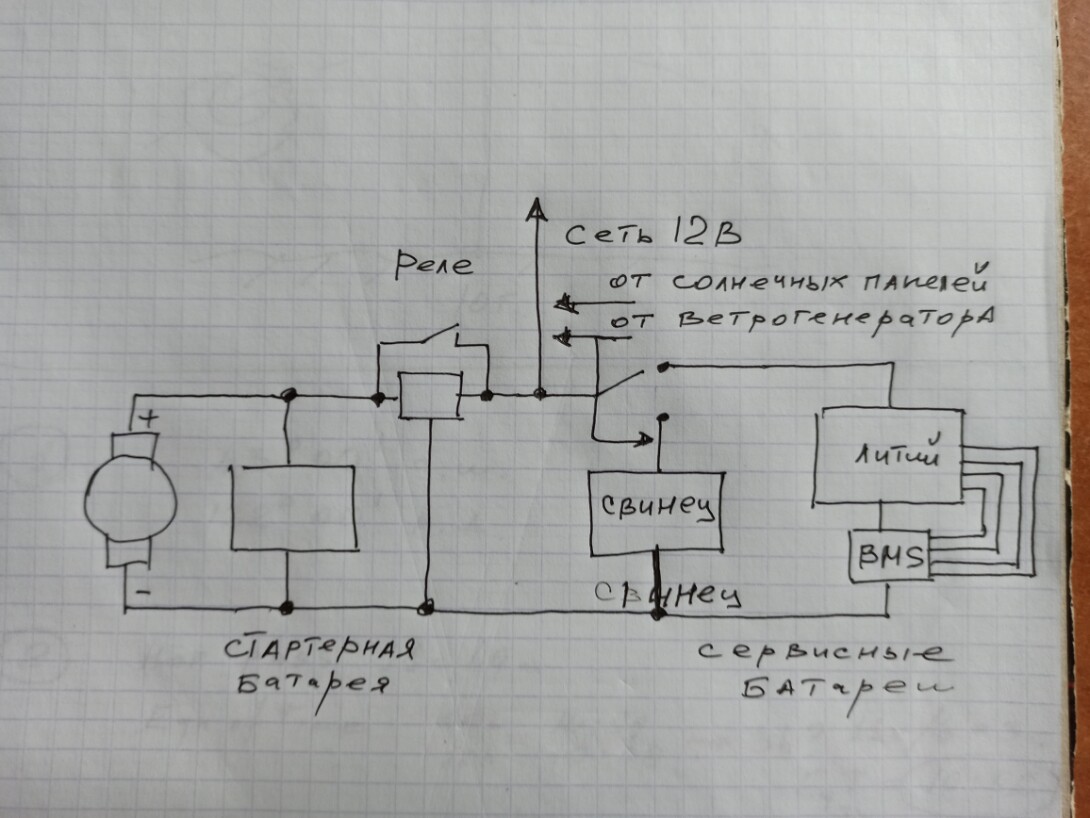 Сеть 12В
Реле
от солнечных панелей
от ветрогенератора
+
литий
свинец
BMS
свинец
-
стартерная
батарея
сервисные
батареи